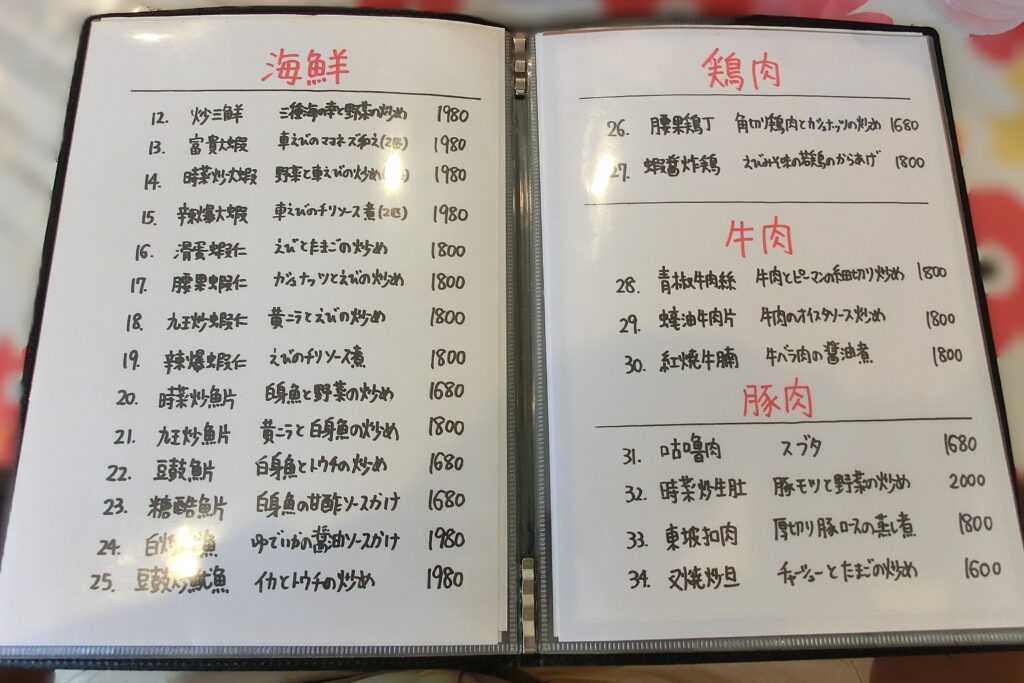 海鮮
12. 炒三鮮 三種海の幸と野菜の炒め 1980
13. 富貴大蝦 車えびのマヨネズ和え(2匹) 1980
14. 時菜炒大蝦 野菜と車えびの炒め 1980
15. 辣爆大蝦 車えびのチリソース煮(2匹) 1980
16. 滑蛋蝦仁 えびとたまごの炒め 1800
17. 腰果蝦仁 カシュナッツとえびの炒め 1800
18. 九王炒蝦仁 黄ニラとえびの炒め 1800
19. 辣爆蝦仁 えびのチリソース煮 1800
20. 時菜炒魚片 白身魚と野菜の炒め 1680
21. 九王炒魚片 黄ニラと白身魚の炒め 1800
22. 豆鼓魚片 白身魚とトウチの炒め 1680
23. 糖酷魚片 白身魚の甘酢ソースかけ 1680
24. 白 ゆでいかの醤油ソースかけ 1980
25. 豆鼓炒魷漁 イカとトウチの炒め 1980
鶏肉
26. 腰果鶏丁 角切り鶏肉とカシュナッツの炒め 1680
27. 蝦醤炸鶏 えびみそ味の若鶏のからあげ 1800
牛肉
28. 青椒牛肉絲 牛肉とピーマンの細切り炒め 1800
29. 蠔油牛肉片 牛肉のオイスタソース炒め 1800
30. 紅焼牛腩 牛バラ肉の醤油煮 1800
豚肉
31. 咕咕嚕肉 スブタ 1680
32. 時菜炒生肚 豚モツと野菜の炒め 2000
33. 東坡扣肉 厚切り豚ロースの蒸し煮 1800
34. 叉焼炒旦 チャーシューとたまごの炒め 1600